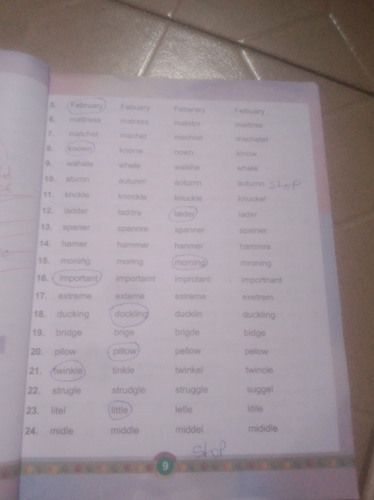 5. February Febuary Feberary Febuary
6. mattress matress
7. matchet machet machetet
8. known knowe nown know
9. whale whele
10. atumn autumn autunm STOP
11. knckle knockle knuckle knuckel
12. ladder laddre lader
13. spaner spannre spanner spainer
14. hamer hammer hanmer
15. moring morning mroning
16. important importemt improtant importnant
17. extreme exteme extreme exetrem
18. ducking duckling ducklin duckling
19. bridge brige brigde bidge
20. pilow pillow pellow pelow
21. twinkle tinkle twinkel twincle
22. strugle strudgle struggle suggel
23. litel little letle ltile
24. midle middle middel mididle
STOP
9